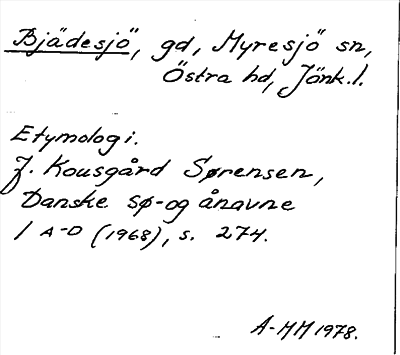 Bjädesjö, gd, Myresjö sn,
Östra hd, Jönk. l.
Etymologi.
J. Kousgård Sørensen,
Danske sø- og ånavne
1 A-D (1968), s. 274.
A-MM 1978.